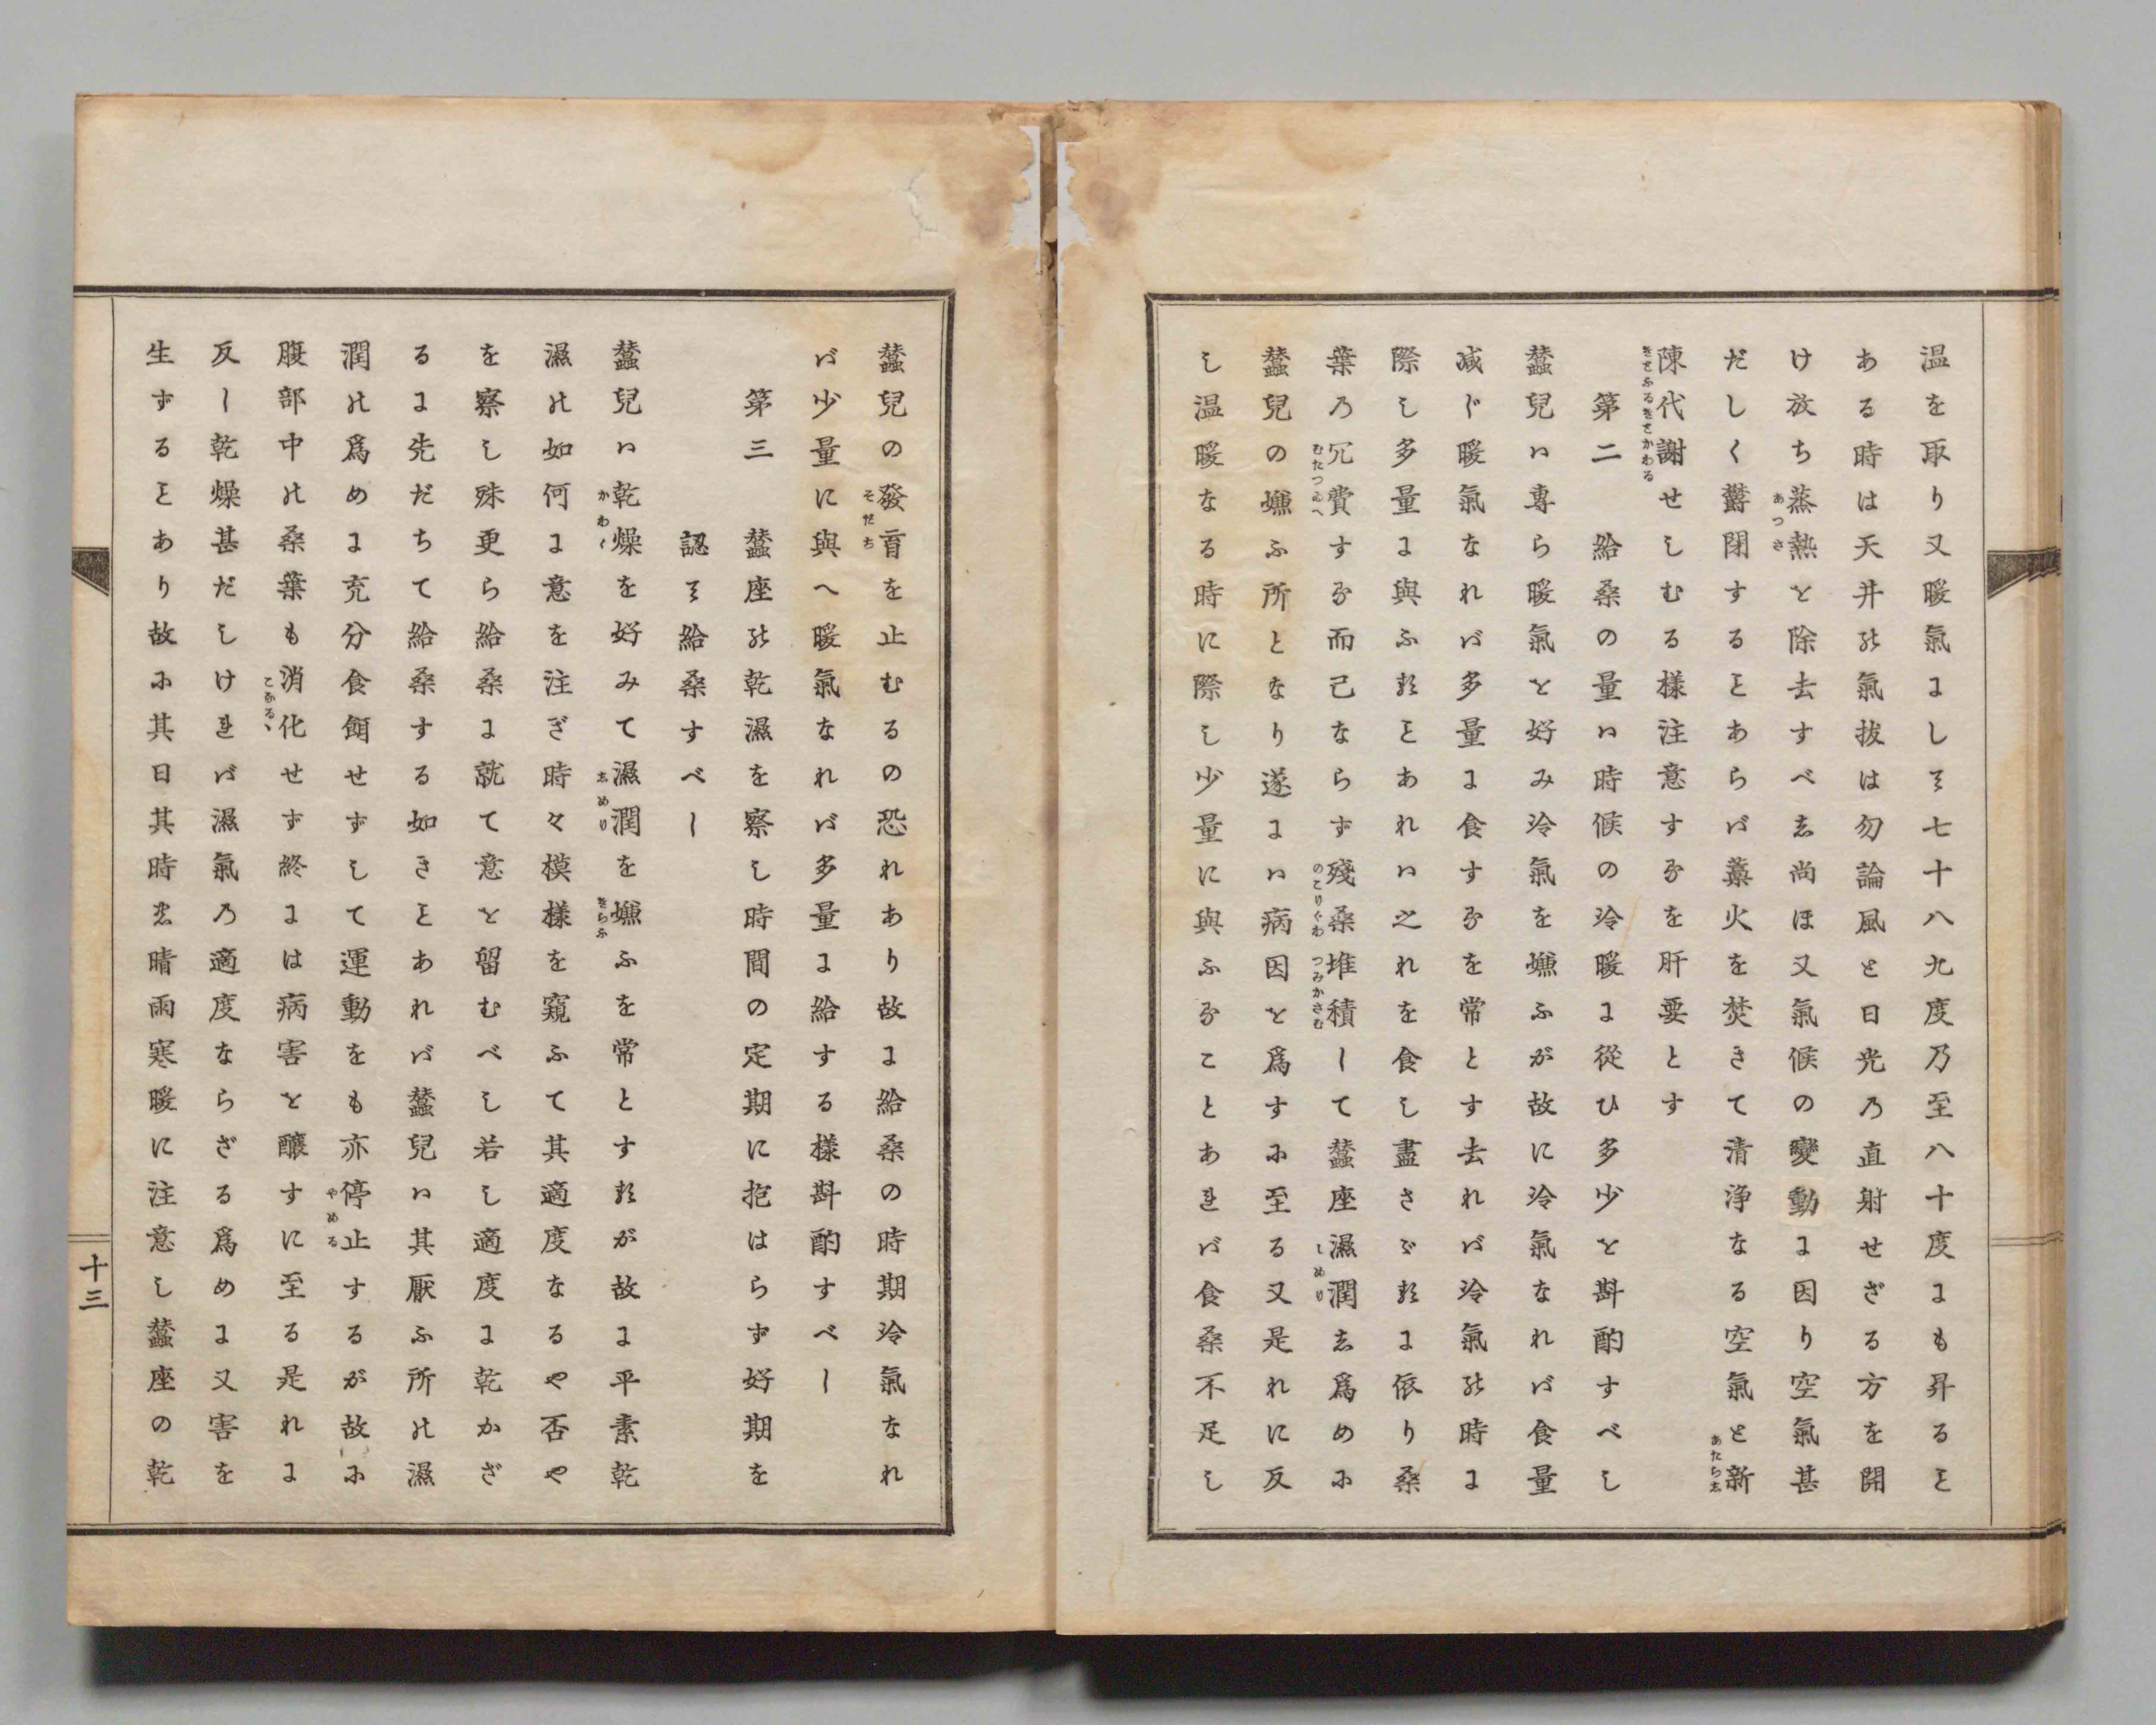 温を取り又暖氣にして七十八九度乃至八十度にも昇ること
ある時は天井の氣拔は勿論風と日光の直射せざる方を開
け放ち蒸熱を除去すべし尚ほ又氣候の變動に因り空氣甚
あつさ
だしく欝閉することあらば藁火を焚きて清浄なる空氣と新
あたらし
陳代謝せしむる様注意するを肝要とす
きをふるきをかわる
第二　給桑の量は時候の冷暖に從ひ多少を斟酌すべし
蠶兒は専ら暖氣を好み冷氣を嫌ふが故に冷氣なれば食量
減じ暖氣なれば多量に食するを常とす去れば冷氣の時に
際し多量に與ふることあれは之れを食し盡さゞるに依り桑
葉の冗費する而己ならず殘桑堆積して蠶座濕潤し爲めに
むたつゐへ　のこりくわ　つみかさむ　しめり
蠶兒の嫌ふ所となり遂には病因を爲すに至る又是れに反
し温暖なる時に際し少量に與ふることあれば食桑不足し
蠶兒の發育を止むるの恐れあり故に給桑の時期冷氣なれ
そだち
ば少量に與へ暖氣なれば多量に給する様斟酌すべし
第三　蠶座の乾濕を察し時間の定期に抱はらず好期を
認て給桑すべし
蠶兒は乾燥を好みて濕潤を嫌ふを常とするが故に平素乾
かわく　しめり　きらふ
濕の如何に意を注ぎ時々模様を窺ふて其適度なるや否や
を察し殊更ら給桑に就て意を留むべし若し適度に乾かざ
るに先だちて給桑する如きことあれば蠶兒は其厭ふ所の濕
潤の爲めに充分食餉せずして運動をも亦停止するが故に
やめる
腹部中の桑葉も消化せず終には病害を釀すに至る是れに
こなるゝ
反し乾燥甚だしければ濕氣の適度ならざる爲めに又害を
生ずることあり故に其日其時の晴雨寒暖に注意し蠶座の乾
十三